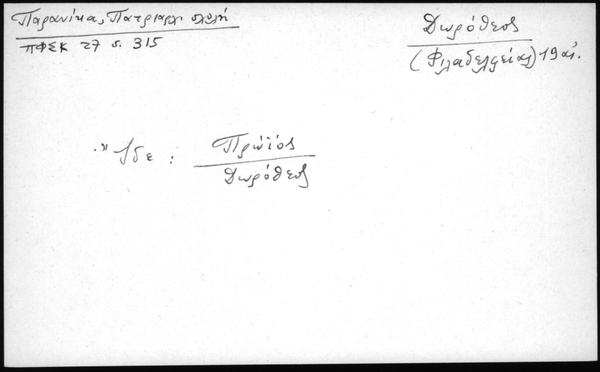 Παρανίκα, Πατριαρχ. σχολή
ΠΦΣΚ 27 σ. 315
Δωρόθεος
(Φιλαδελφείας) 19 αἰ.
Ἴδε :
Πρώϊος
Δωρόθεος